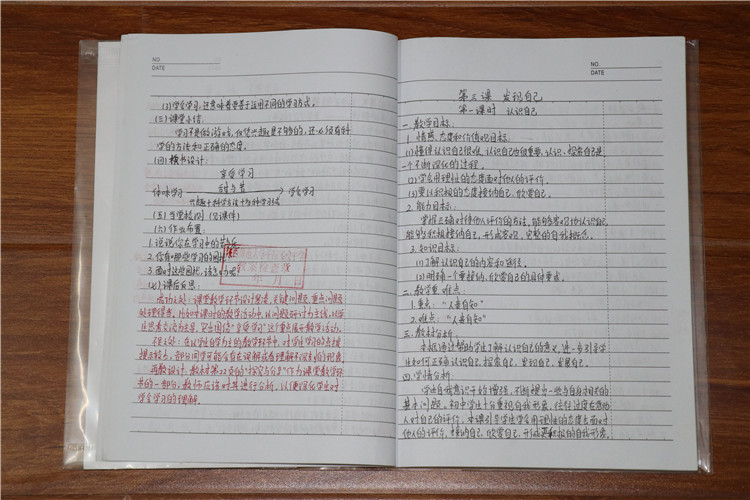 NO.
DATE
(3)学会学习,还意味着要善于运用不同的学习方式。
(三)课堂小结
学习不是做游戏,仅凭兴趣是不够的,还必须有科
学的方法和正确的态度。
(四)板书设计:
享受学习
体味学习 苦与乐 学会学习
兴趣+科学方法+多种学习方式
(五)当堂检测(见课件)
(六)作业布置:
1.说说你在学习中的苦与乐
2.你有哪些学习的困扰
3.面对这些困扰,该怎么办呢?
教案检查章
年 月 日
(七)课后反思:
成功之处:课堂教学环节设计紧凑,关键问题、重点问题
处理得当。
思考交流为主导,突出围绕“享受学习”这个重点展开教学活动。
不足之处:在以学生自学为主的教学环节中,对学生学习的点拨
部分同学可能会存在误解或者理解不深刻的现象。
再教设计:教材第22页的“探究与分享”作为课堂教学环
节的一部分,教师应该对其进行分析,以便深化学生对
学会学习的理解。
NO.
DATE
第三课 发现自己
第一课时 认识自己
一.教学目标:
1.情感、态度和价值观目标:
(1)懂得认识自己很难,认识自己为何重要,认识、探索自己是
一个不断深化的过程。
(2)学会用理性的态度面对他人的评价。
(3)要以积极的态度接纳自己,欣赏自己。
2.能力目标:
掌握正确对待他人评价的方法,能够客观地认识自己,
能够积极接纳自己,形成客观、完整的自我概念。
3.知识目标:
(1)了解认识自己的内容和途径。
(2)明确一个要接纳、欣赏自己的具体要求。
二.教学重、难点:
1.重点:“人贵自知”
2.难点:“人贵自知”
三.教材分析:
本框通过帮助学生了解认识自己的意义,进一步引导学
生如何正确认识自己,探索自己,发现自己,发展自己。
四.学情分析:
学生自我意识不断增强,不断提出一些与自身相关的
基本问题。初中学生十分重视自我形象,往往过度在意他
人对自己的评价,本课引导学生学会用理性的态度去面对
他人的评价,接纳自己,欣赏自己,形成积极的自我形象。